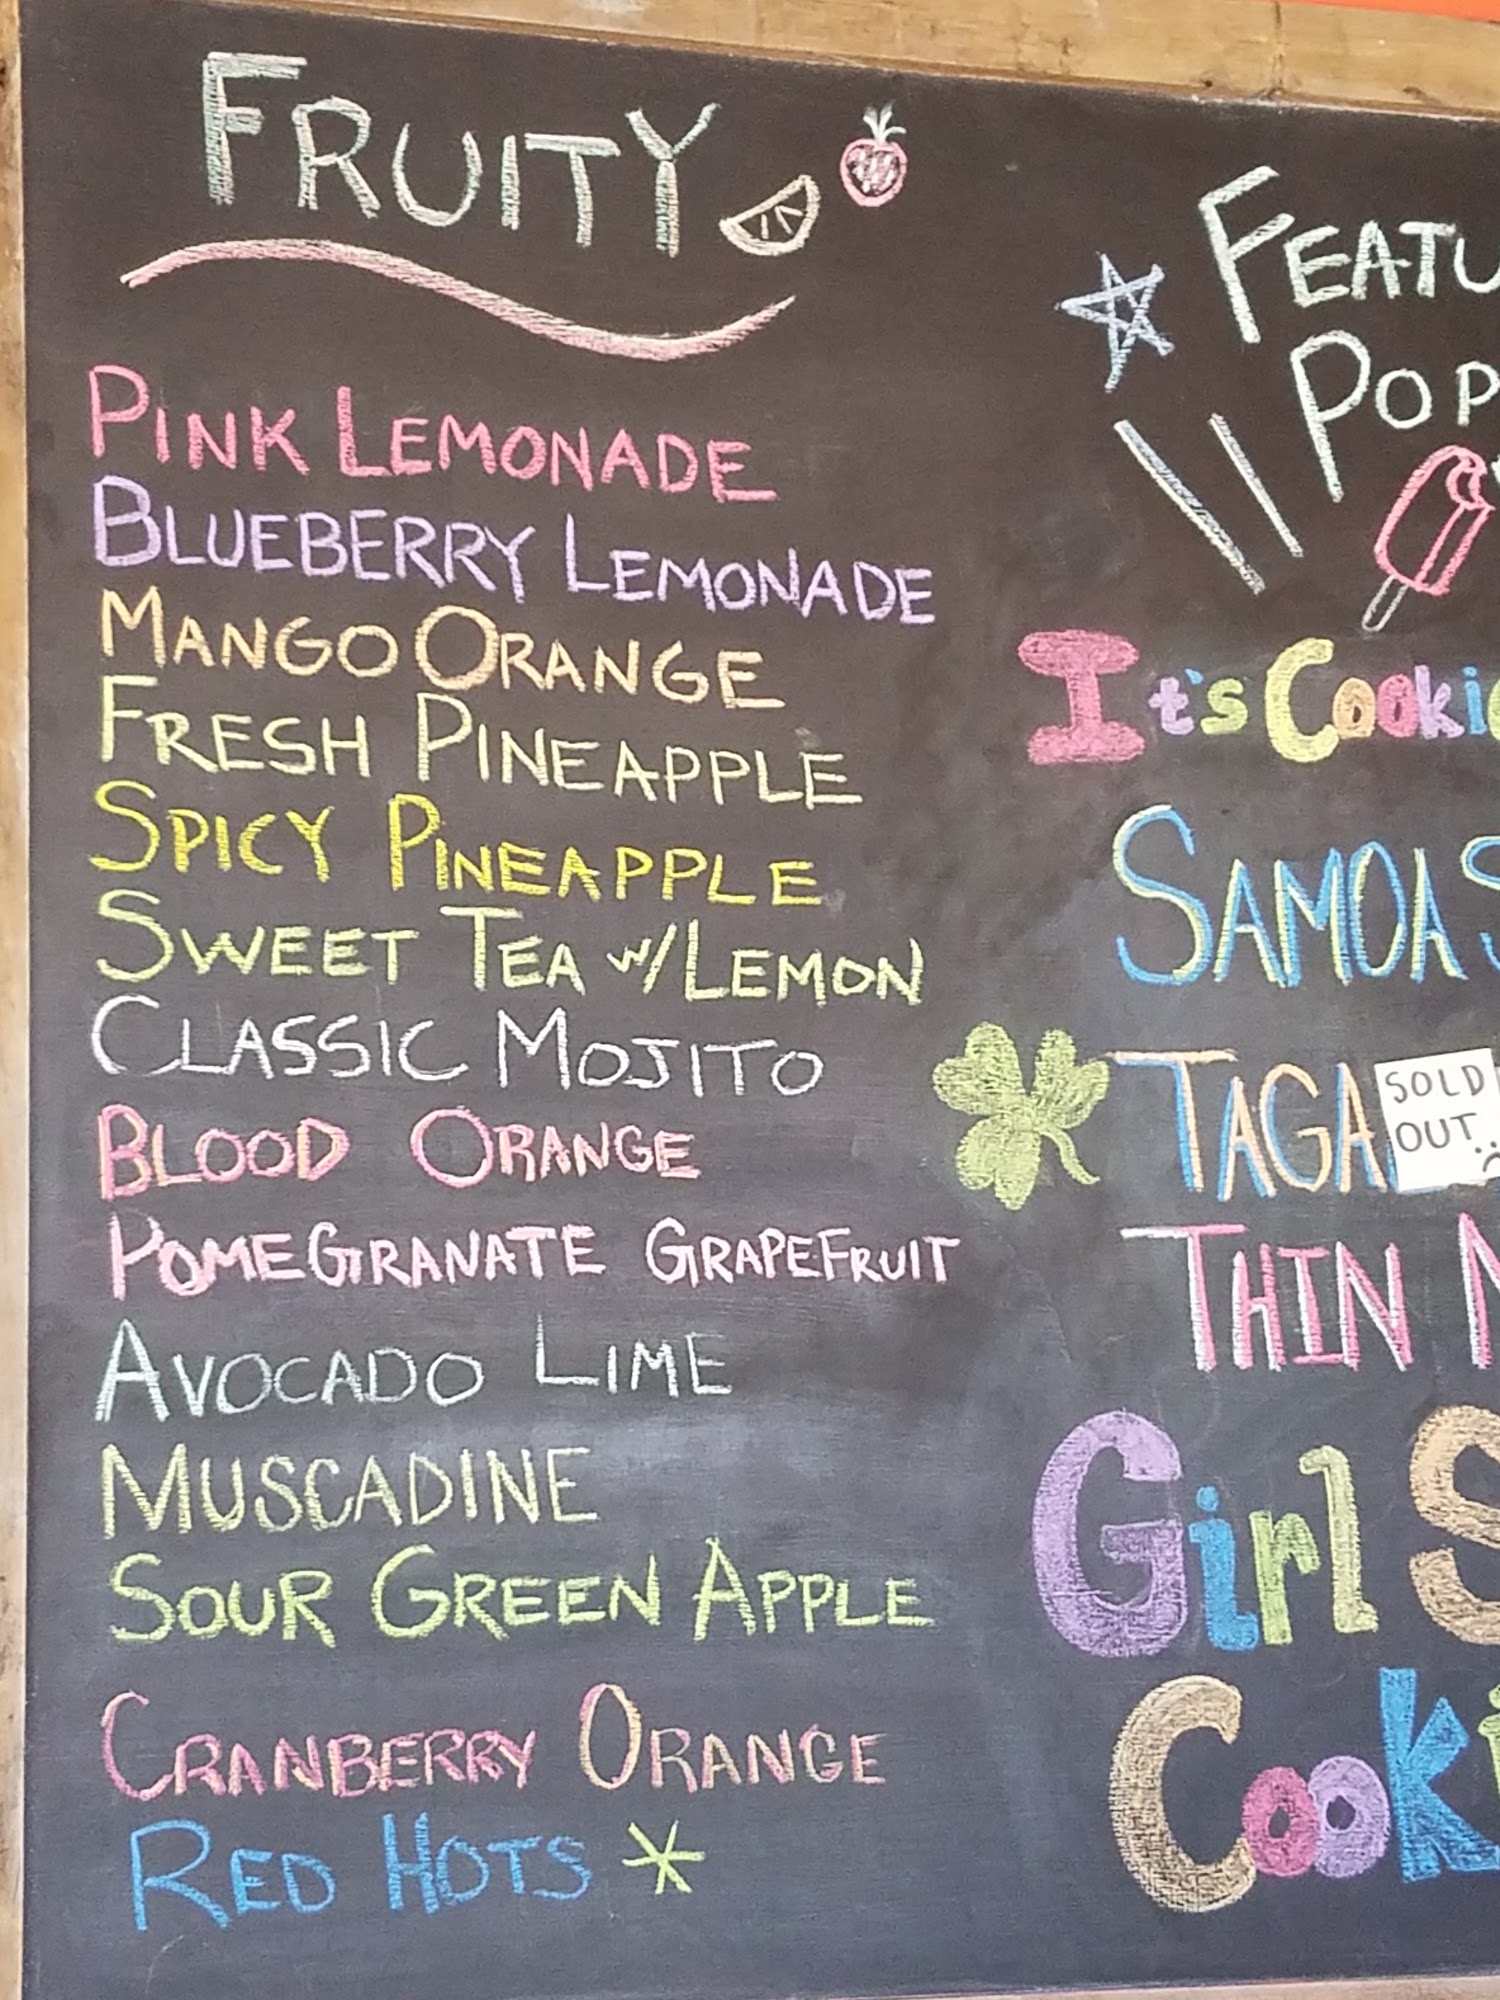 FRUITY
PINK LEMONADE
BLUEBERRY LEMONADE
MANGO ORANGE
FRESH PINEAPPLE
SPICY PINEAPPLE
SWEET TEA w/LEMON
CLASSIC MOJITO
BLOOD ORANGE
POMEGRANATE GRAPEFRUIT
AVOCADO LIME
MUSCADINE
SOUR GREEN APPLE
CRANBERRY ORANGE
RED HOTS *
FEATU
POP
It's Cookie
SAMOA S
TAGA
SOLD
OUT
THIN M
Girl S
Cooki